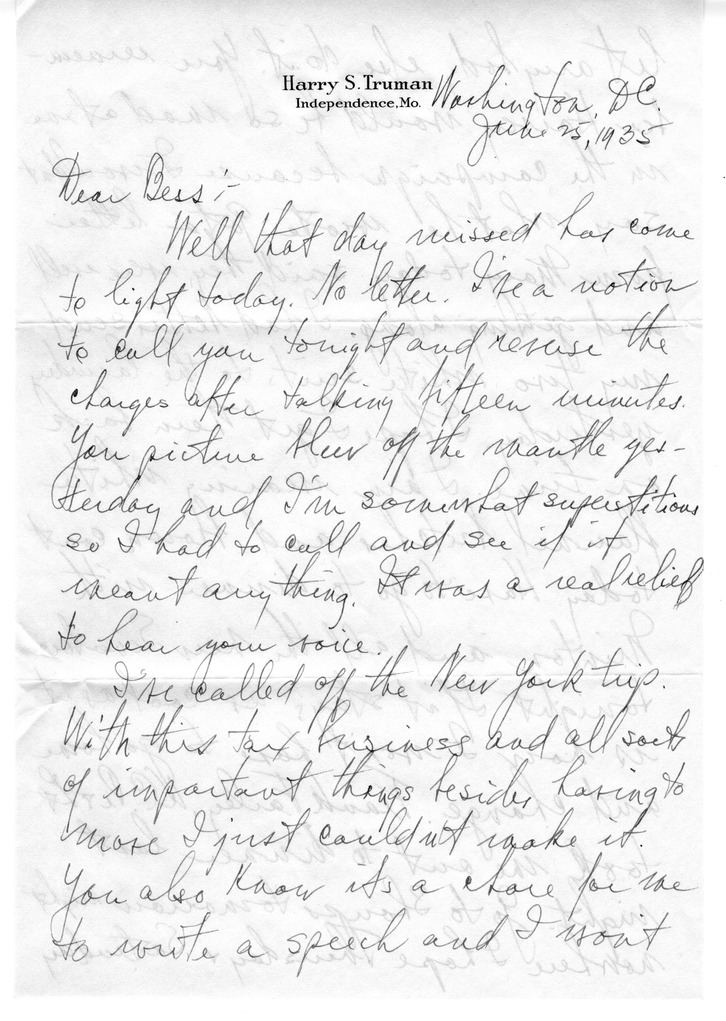 Harry S. Truman
Independence, Mo.
Washington, D.C.
June 25, 1935
Dear Bess :-
Well that day missed has come
to light today. No letter. I've a notion
to call you tonight and reverse the
charges after talking fifteen minutes.
You picture blew off the mantle yes-
terday and I'm somewhat superstitious
so I had to call and see if it
meant anything. It was a real relief
to hear your voice.
I've called off the New York trip.
With this tax business and all sorts
of important things besides having to
move I just couldn't make it.
You also know its a chore for me
to write a speech and I won't